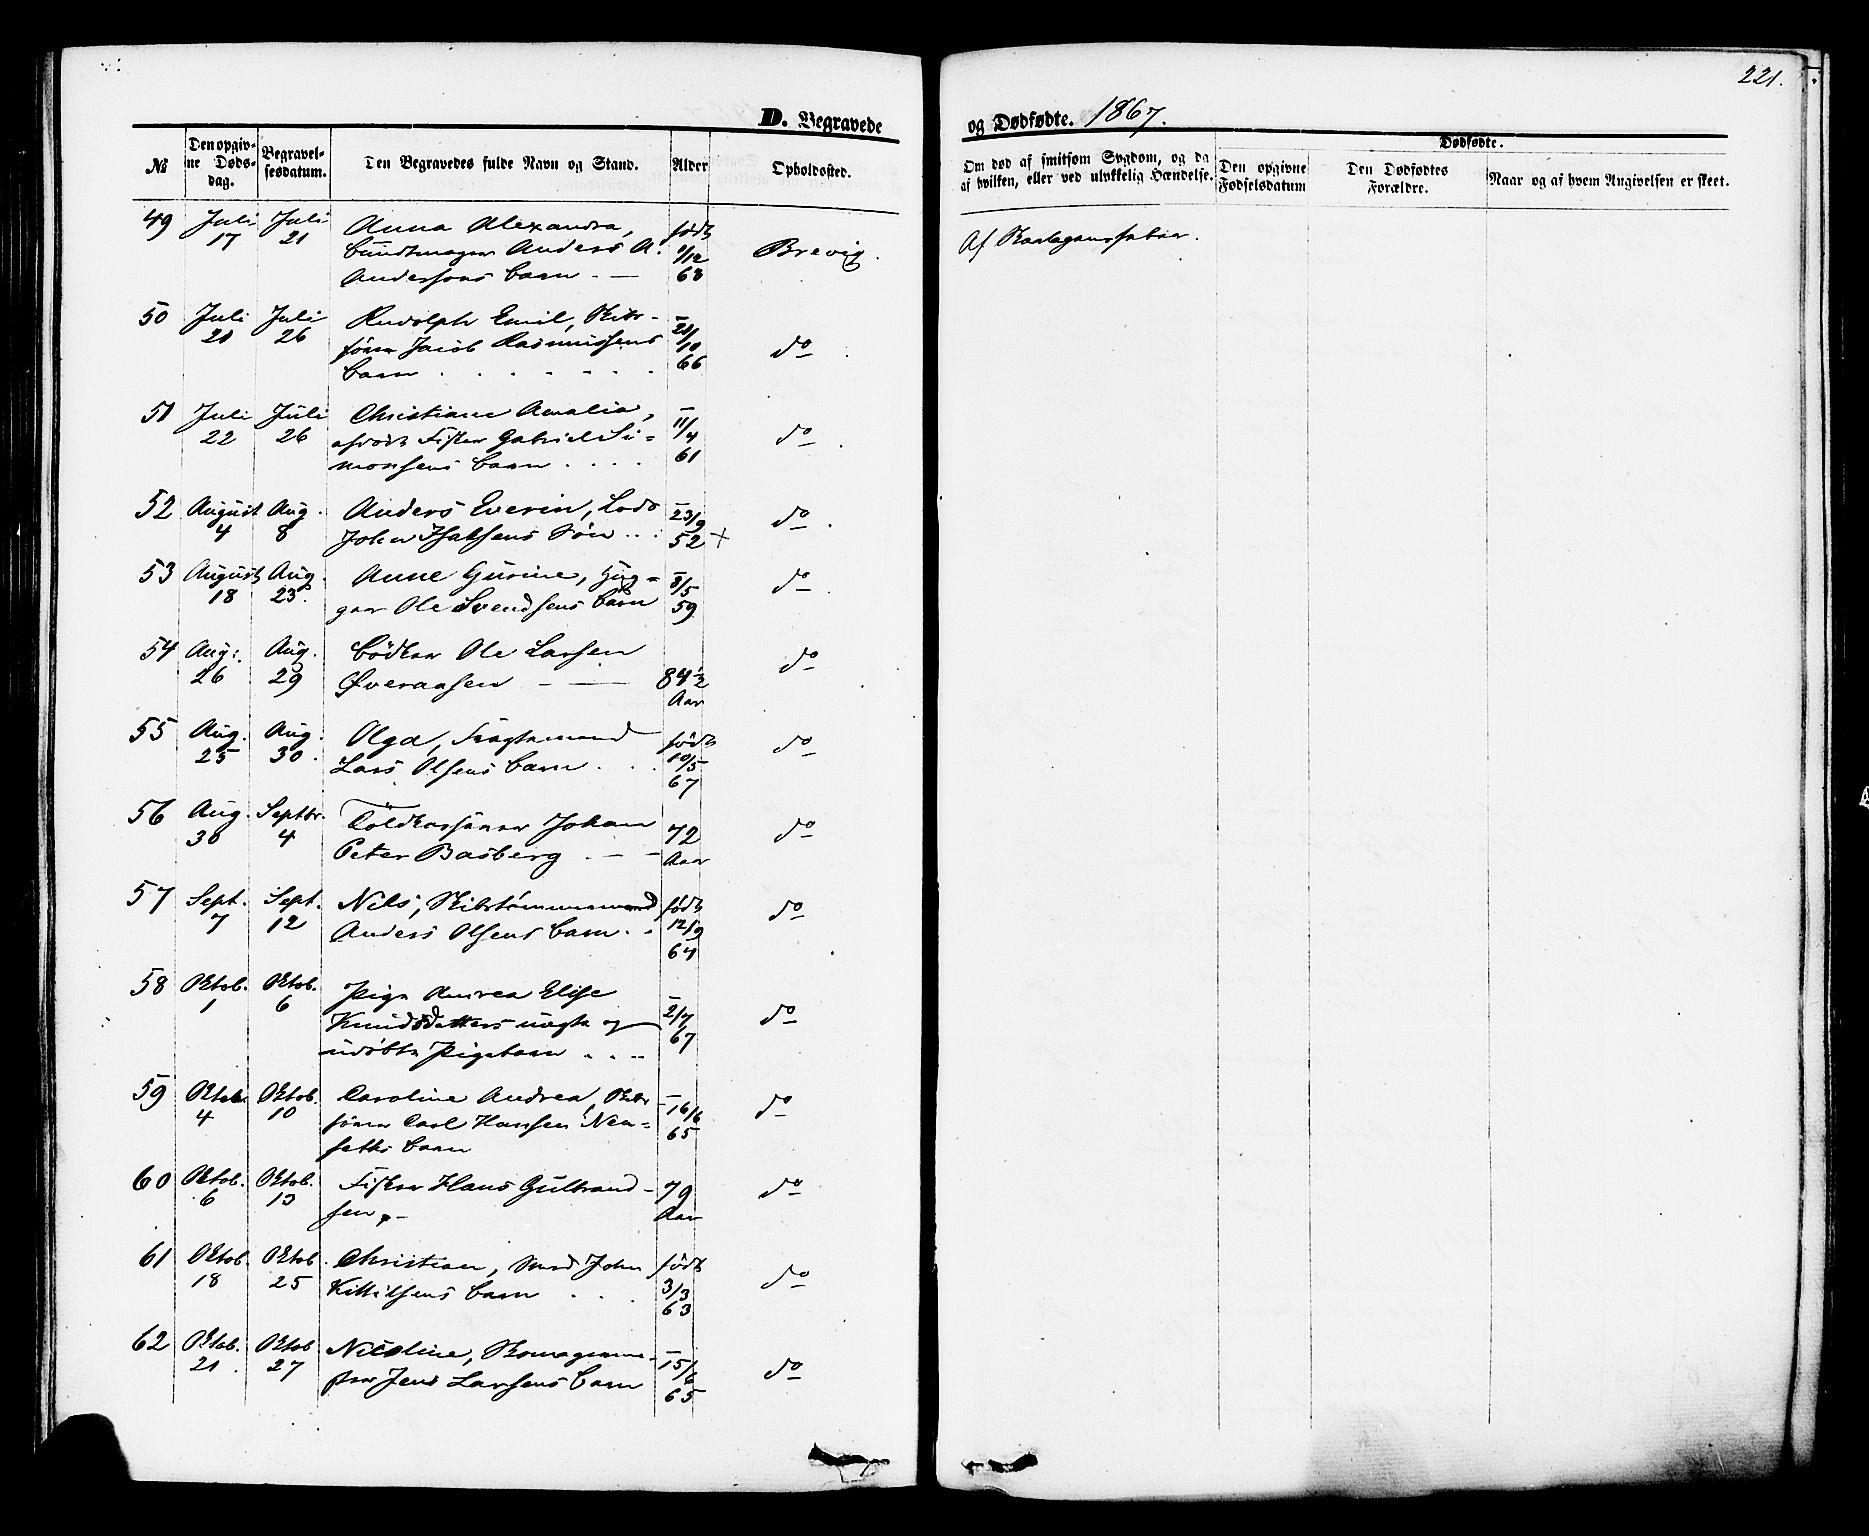 221.
D. Begravede og Dødfødte. 1867.
№
Den opgiv-
ne Døds-
dag.
Begravel-
sesdatum.
Den Begravedes fulde Navn og Stand.
Alder
Opholdssted.
Om død af smitsom Sygdom, og da
af hvilken, eller ved ulykkelig Hændelse.
Dødfødte.
Den opgivne
Fødselsdatum
Den Dødfødtes
Forældre.
Naar og af hvem Angivelsen er skeet.
49 Juli Juli Anna Alexandra, født
17 21 Buntmager Anders A. 1/12 Brevig. Af Skarlagensfeber.
Anderssons Barn . — 63
50 Juli Juli Rudolph Emil, Skibs- —
21 26 fører Jacob Rasmussens 21/10 do
Barn . . . . . . 66
51 Juli Juli Christiane Amalia, —
22 26 Fisker Gabriel Si- 11/4 do
monsens Barn . . . . 61
52 August Aug. Anders Everin, Lods —
4 8 John Isaksens Søn . . . 23/9 52 + do
53 August Aug. Anne Gurine, Hug- —
18 23. ger Ole Svendsens Barn 8/5 59 do
54 Aug: Aug. Bødker Ole Larsen
26 29 Øveraasen — — 84½ do
Aar
55 Aug. Aug. Olga, Fragtemand født
25 30. Lars Olsens Barn . . . 10/5 do
67
56 Aug. Septbr. Toldkasserer Johan 72
30 4 Peter Basberg . — — Aar do
57 Sept. Sept. Nils, Skibstømmermand født
7 12 Anders Olsens Barn . . 12/9 do
64
58 Oktob. Oktob. Pige Andrea Elise —
1 6 Knudsdatters uægte og 2/7 do
udøbte Pigebarn . . . . 67
59 Oktob. Oktob. Caroline Andrea, Skibs- —
4 10 fører Carl Hansen Nen- 16/6 do
seths Barn 65
60 Oktob. Oktob. Fisker Hans Gulbrand- 79
6 13 sen . — Aar do
61 Oktob. Oktob. Christian, Smed John født
18 25 Kittilsens Barn . . . 3/3 do
63
62 Oktob. Oktob. Nicoline, Skomagerme- —
21 . 27 ster Jens Larsens Barn 15/6 do
65